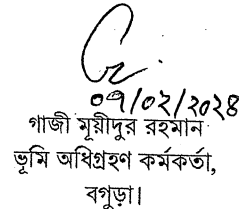 ০৭/০২/২০২৪
গাজী মূয়ীদুর রহমান
ভূমি অধিগ্রহণ কর্মকর্তা,
বগুড়া।